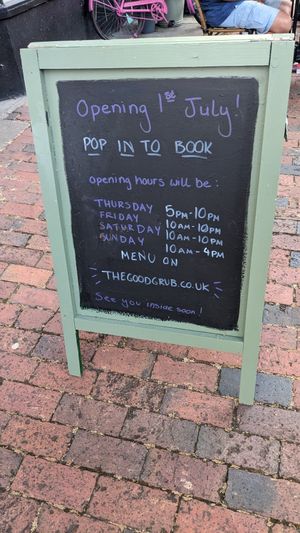 Opening 1st July!
POP IN TO BOOK
opening hours will be:
THURSDAY 5PM-10PM
FRIDAY 10AM-10PM
SATURDAY 10AM-10PM
SUNDAY 10AM-4PM
MENU ON
THEGOODGRUB.CO.UK
See you inside soon!